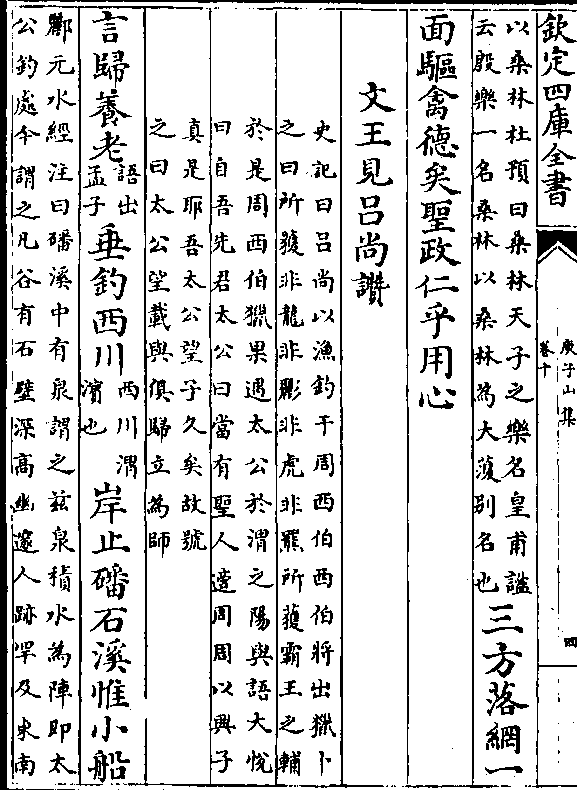 欽定四庫全書
庾子山集
卷十
四
以桑林杜預曰桑林天子之樂名皇甫謐
云殷樂一名桑林以桑林為大濩别名也
三方落網一
面驅禽德矣聖政仁乎用心
文王見呂尚讚
史記曰呂尚以漁釣干周西伯西伯將出獵卜
之曰所獲非龍非彨非虎非羆所獲霸王之輔
於是周西伯獵果遇太公於渭之陽與語大悅
曰自吾先君太公曰當有聖人適周周以興子
真是耶吾太公望子久矣故號
之曰太公望載與俱歸立為師
言歸養老
語出
孟子
垂釣西川
西川渭
濱也
岸止磻石溪惟小船
酈元水經注曰磻溪中有泉謂之兹泉積水為陣即太
公釣處今謂之凡谷有石壁深高幽邃人跡罕及東南